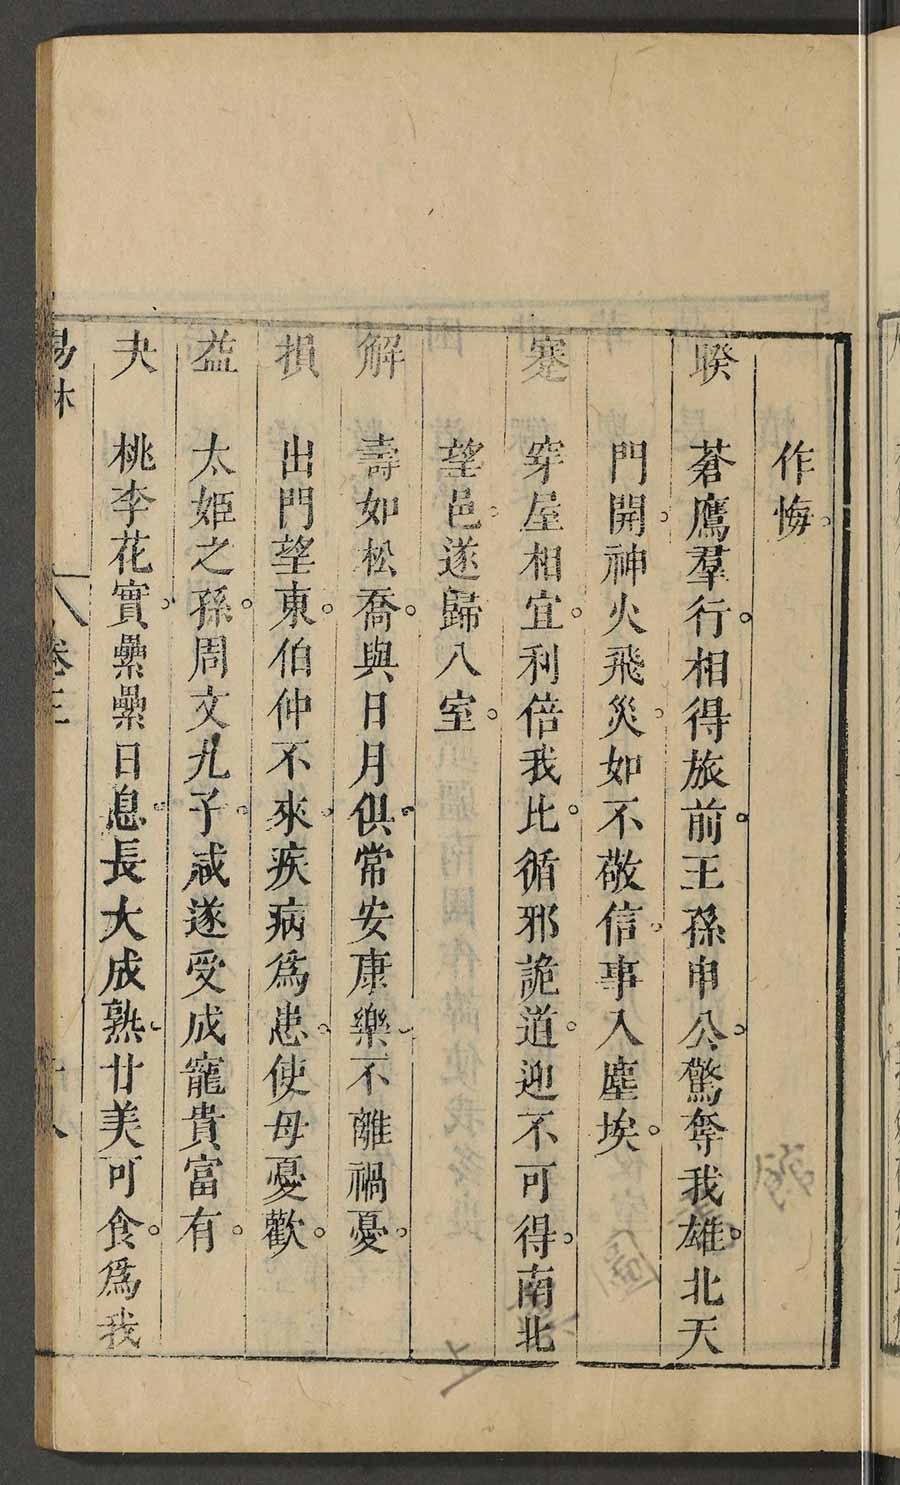 作悔。
睽　蒼鷹羣行。相得旅前。王孫申公。驚奪我雄。北天
門開。神火飛災。如不敬信。事入塵埃。
蹇　穿屋相宜。利倍我比。循邪詭道。迎不可得。南北
望邑。遂歸入室。
解　壽如松喬。與日月俱。常安康樂。不離禍憂。
損　出門望東。伯仲不來。疾病爲患。使母憂歡。
益　太姬之孫。周文九子。咸遂受成。寵貴富有。
夬　桃李花實。纍纍日息。長大成熟。甘美可食。爲我
易林　卷三　十八